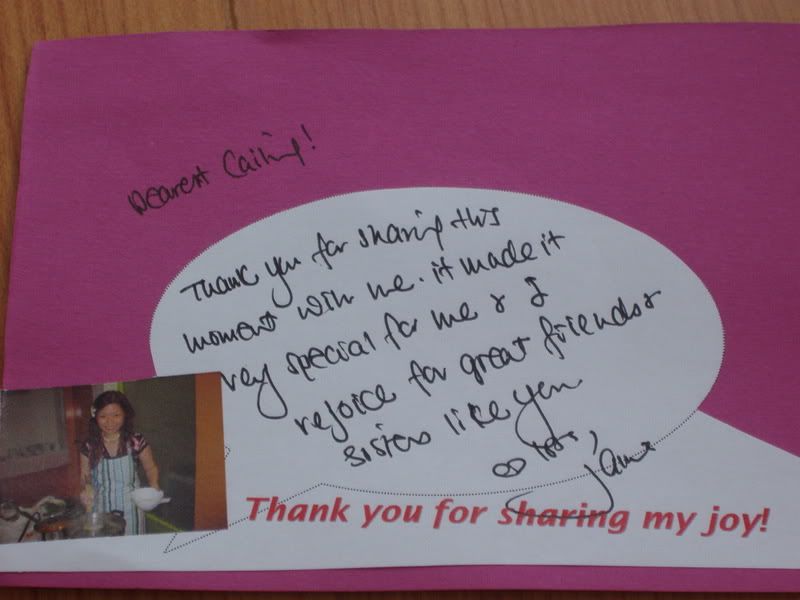 Dearest Cailing!
Thank you for sharing this
moment with me. it made it
very special for me & I
rejoice for great friends &
sisters like you
Thank you for sharing my joy!